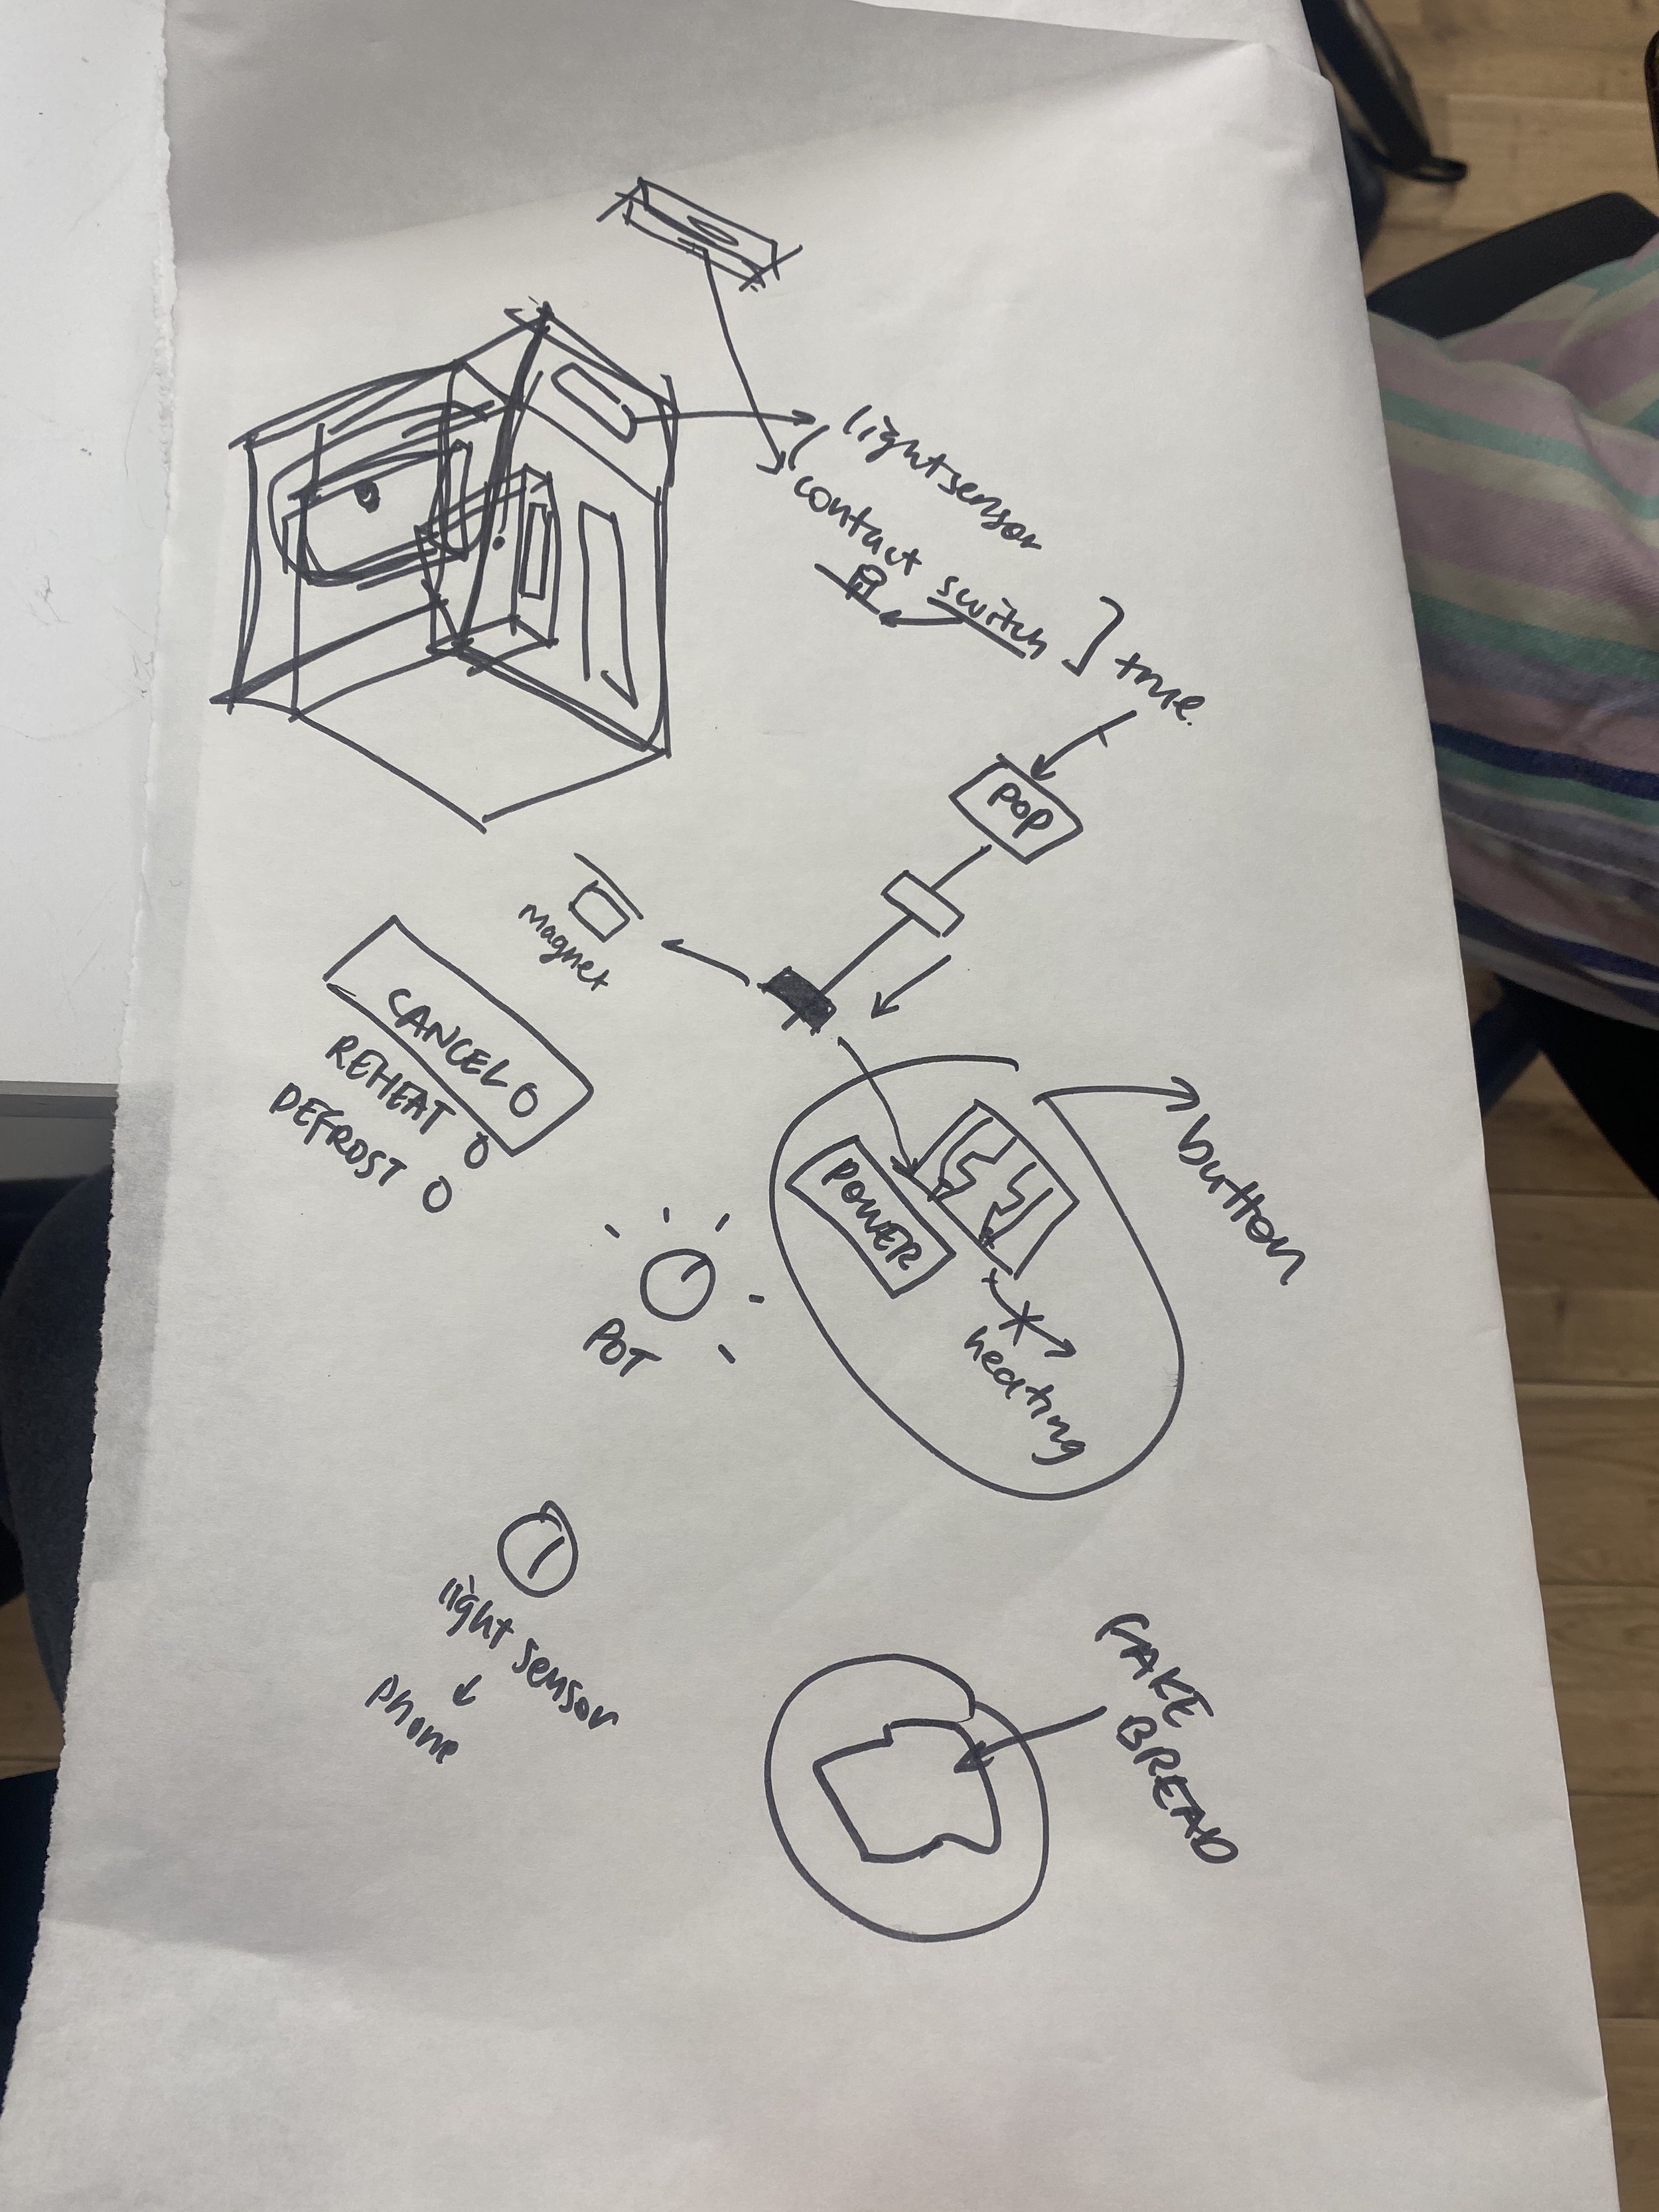 lightsensor
contact switch
true.
POP
magnet
CANCEL
REHEAT
DEFROST
button
POWER
heating
POT
light sensor
phone
FAKE
BREAD